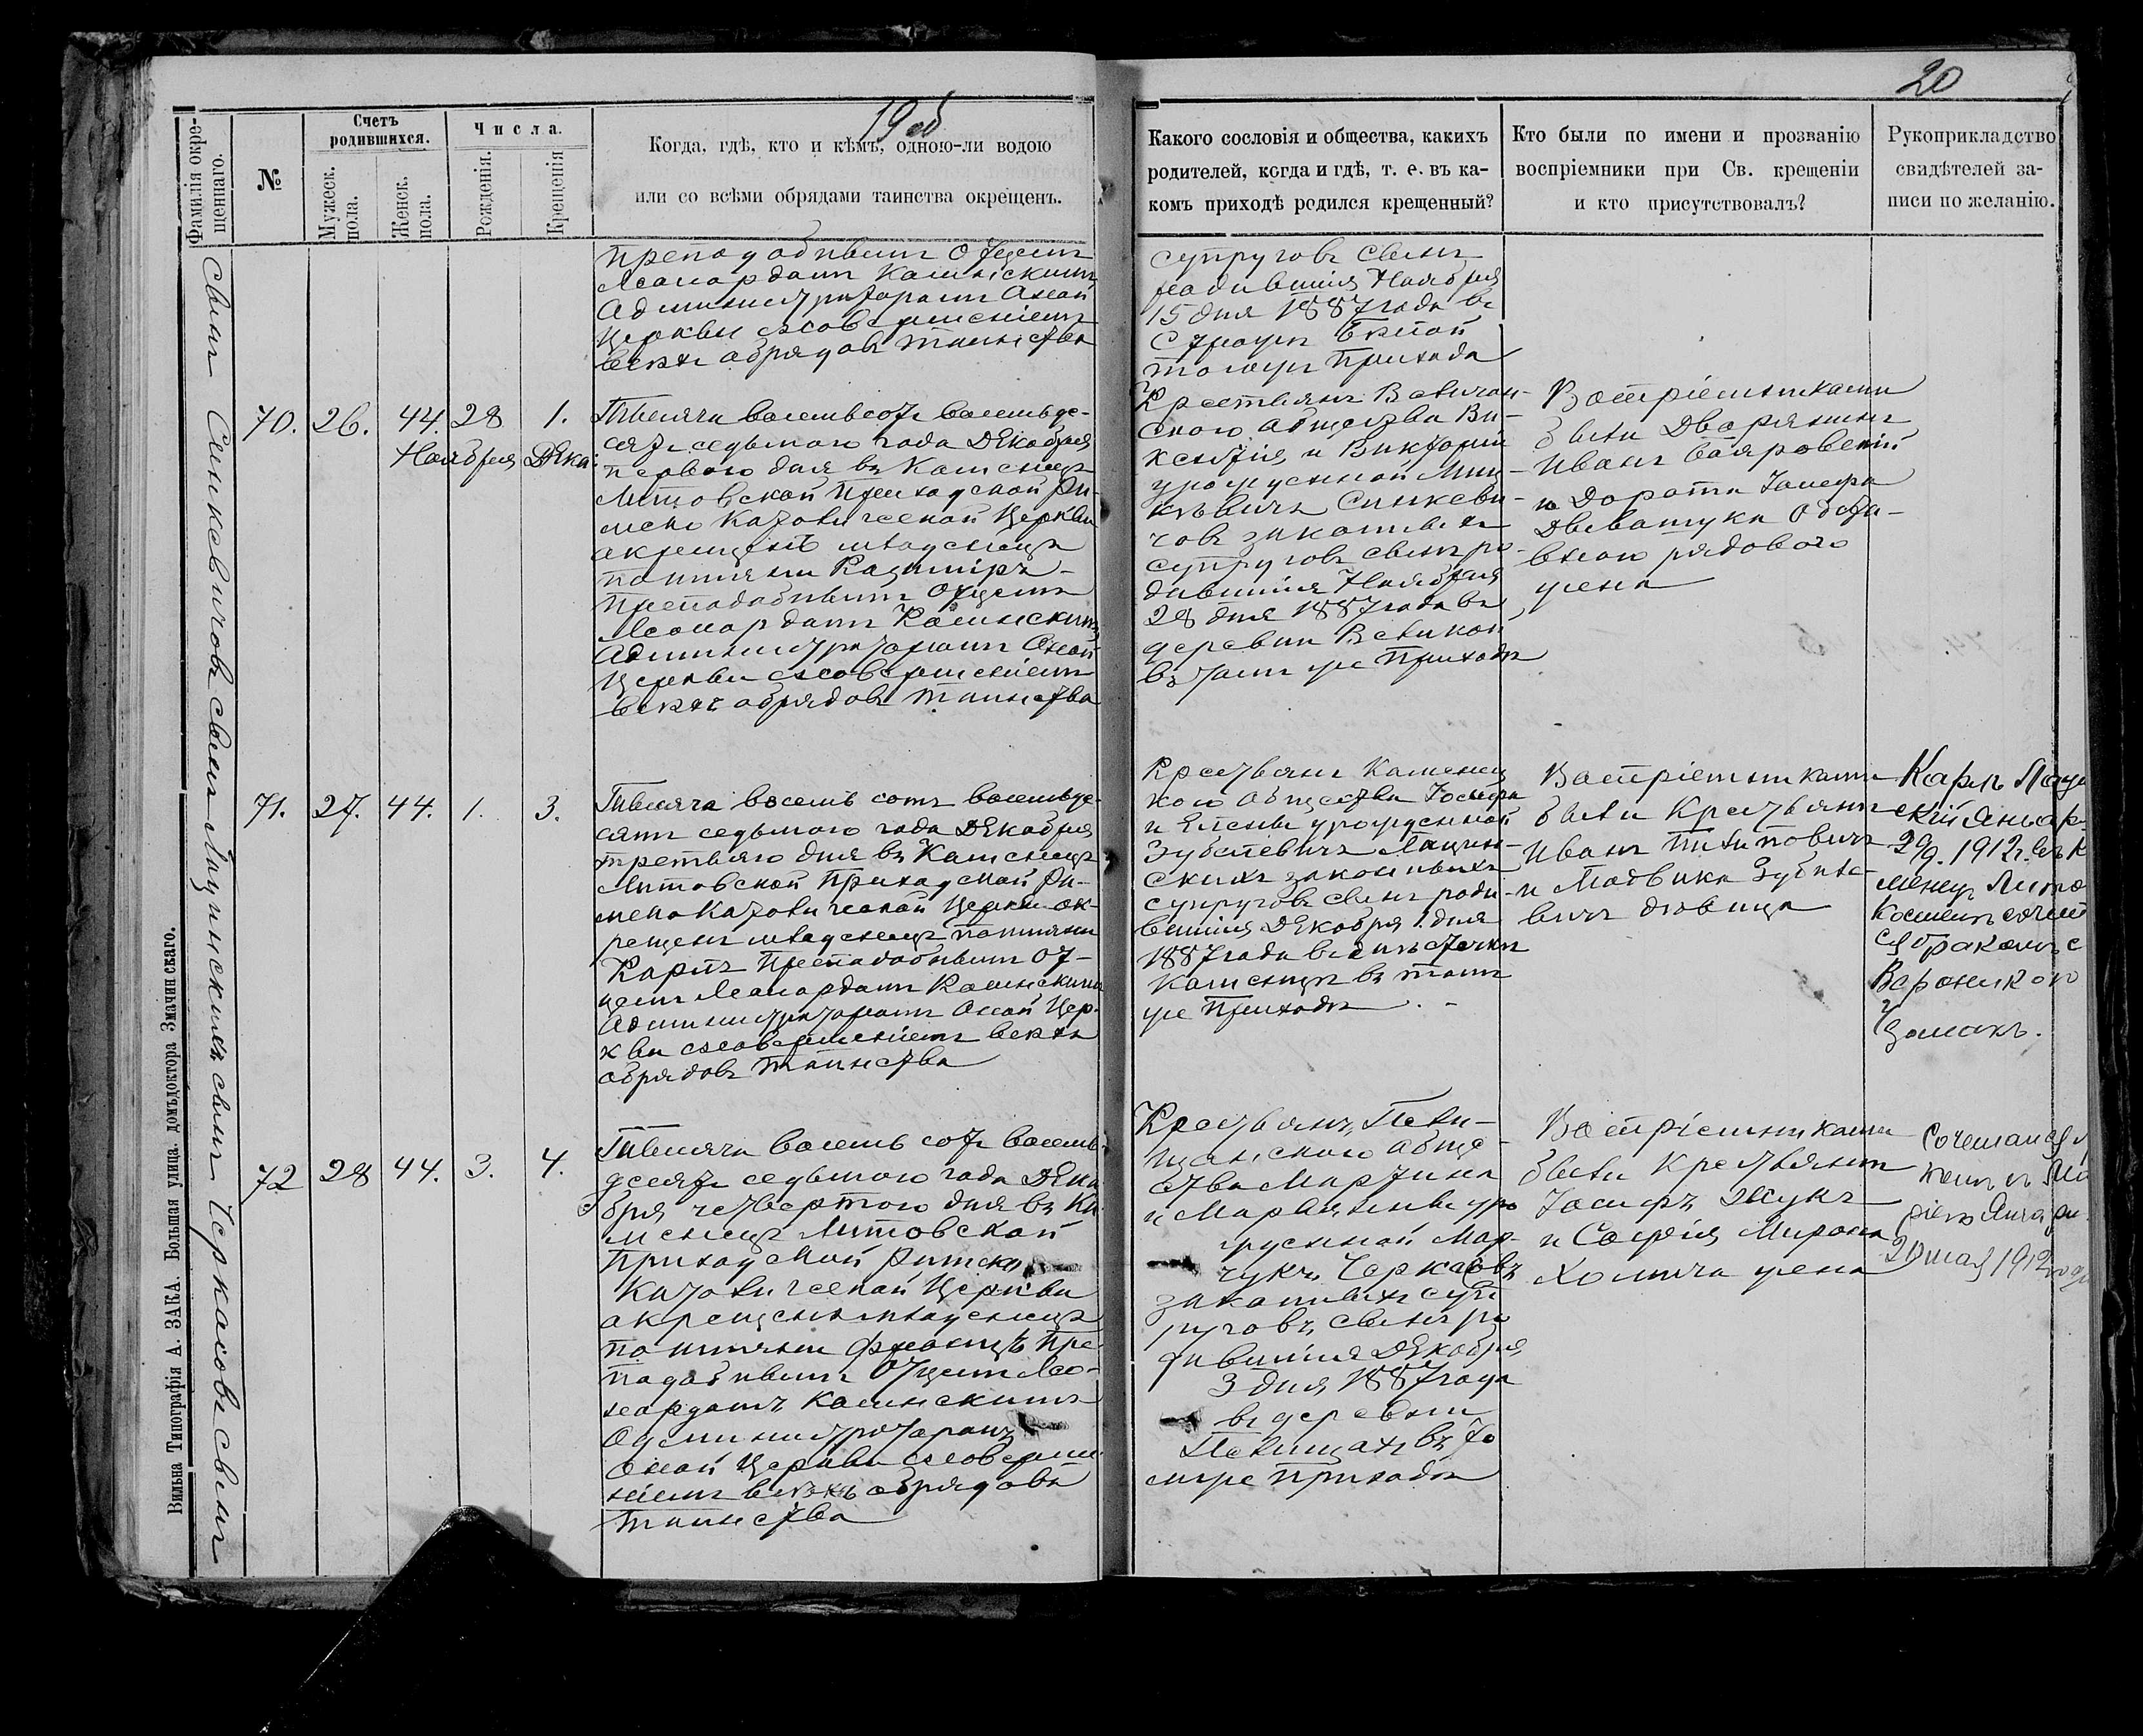 19 об
20
Фамилія окре-
щеннаго.
№
Счетъ
родившихся.
Мужеск.
пола.
Женск.
пола.
Числа.
Рожденія.
Крещенія
Когда, гдѣ, кто и кѣмъ, одною-ли водою
или со всѣми обрядами таинства окрещенъ.
Какого сословія и общества, какихъ
родителей, когда и гдѣ, т. е. въ ка-
комъ приходѣ родился крещенный?
Кто были по имени и прозванію
воспріемники при Св. крещеніи
и кто присутствовалъ?
Рукоприкладство
свидѣтелей за-
писи по желанію.
Преподобнымъ Отцемъ
Леонардомъ Каминскимъ
Администраторомъ оной
Церкви съ совершеніемъ
всѣхъ обрядовъ таинства
супруговъ сынъ
родившійся Ноября
15 дня 1887 года въ
томже Прихода
Синкевичовъ сынъ
70. 26. 44. 28 1.
Ноября Дека
Тысяча восемьсотъ восемьде-
сятъ седьмого года Декабря
перваго дня въ Каменецъ
Литовской Приходской Ри-
мско Католической Церкви
окрещенъ младенецъ
по имяни Казимиръ
Преподобнымъ Отцемъ
Леонардомъ Каминскимъ
Администраторомъ Оной
Церкви съ совершеніемъ
всѣхъ обрядовъ таинства
скаго общества Ви-
кентія и Викторіи
урожденной Миц-
кѣвичъ Синкеви-
човъ законныхъ
супруговъ сынъ ро-
дившійся Ноября
28 дня 1887 года въ
деревни Великой
въ томъ же Приходѣ
Воспріемниками
были Дворянинъ
Иванъ
и Дорота Іосифа
рядового
жена
Лущинскихъ сынъ
71. 27. 44. 1. 3.
Тысяча восемь сотъ восемьде-
сятъ седьмого года Декабря
третьяго дня въ Каменецъ
Литовской Приходской Ри-
мско Католической Церкви ок-
рещенъ младенецъ по имяни
Карлъ Преподобнымъ От-
цемъ Леонардомъ Каминскимъ
Администраторомъ Оной Цер-
кви съ совершеніемъ всѣхъ
обрядовъ таинства
Крестьянъ Каменец
кого общества Іосифа
и Елены урожденной
скихъ законныхъ
супруговъ сынъ роди-
вшійся Декабря 1 дня
1887 года въ мѣстечки
Каменцъ въ томъ
же Приходѣ
Воспріемниками
были Крестьянинъ
Иванъ
и Людвика
вичъ дѣвица
Карлъ
29/I. 1912 г. въ К
менец Лито
Костелѣ сочет
ся бракомъ с
Вероникой
Черкасовъ сынъ
72 28 44. 3. 4.
Тысяча восемь сотъ восемь-
десятъ седьмого года Дека
бря четвертого дня въ Ка
менецъ Литовской
Приходской Римско
Католической Церкви
окрещенъ младенецъ
по имяни Францъ Пре-
подобнымъ Отцемъ Лео-
нардомъ Каминскимъ
Администраторомъ
Оной Церкви съ соверше
ніемъ всѣхъ обрядовъ
таинства
Крестьянъ
щанского обще-
ства Мартина
и Марьянны уро
жденной Мар-
чукъ Черкасовъ
законныхъ суп
руговъ сынъ ро
дившійся Декабря
3 дня 1887 года
въ деревни
въ то
мже Приходѣ
Воспріемниками
были Крестьянинъ
Іосифъ Жукъ
и Софія Мирона
жена
20 мая 1912 года
Вильна Типографія А. ЗАКА. Большая улица. домъ доктора Змачинскаго.